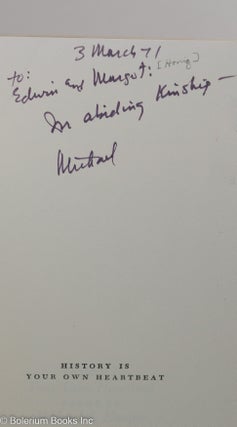 3 March 71
to:
Edwin and Margot: [Honig]
In abiding Kinship —
Michael
HISTORY IS
YOUR OWN HEARTBEAT
© Bolerium Books Inc